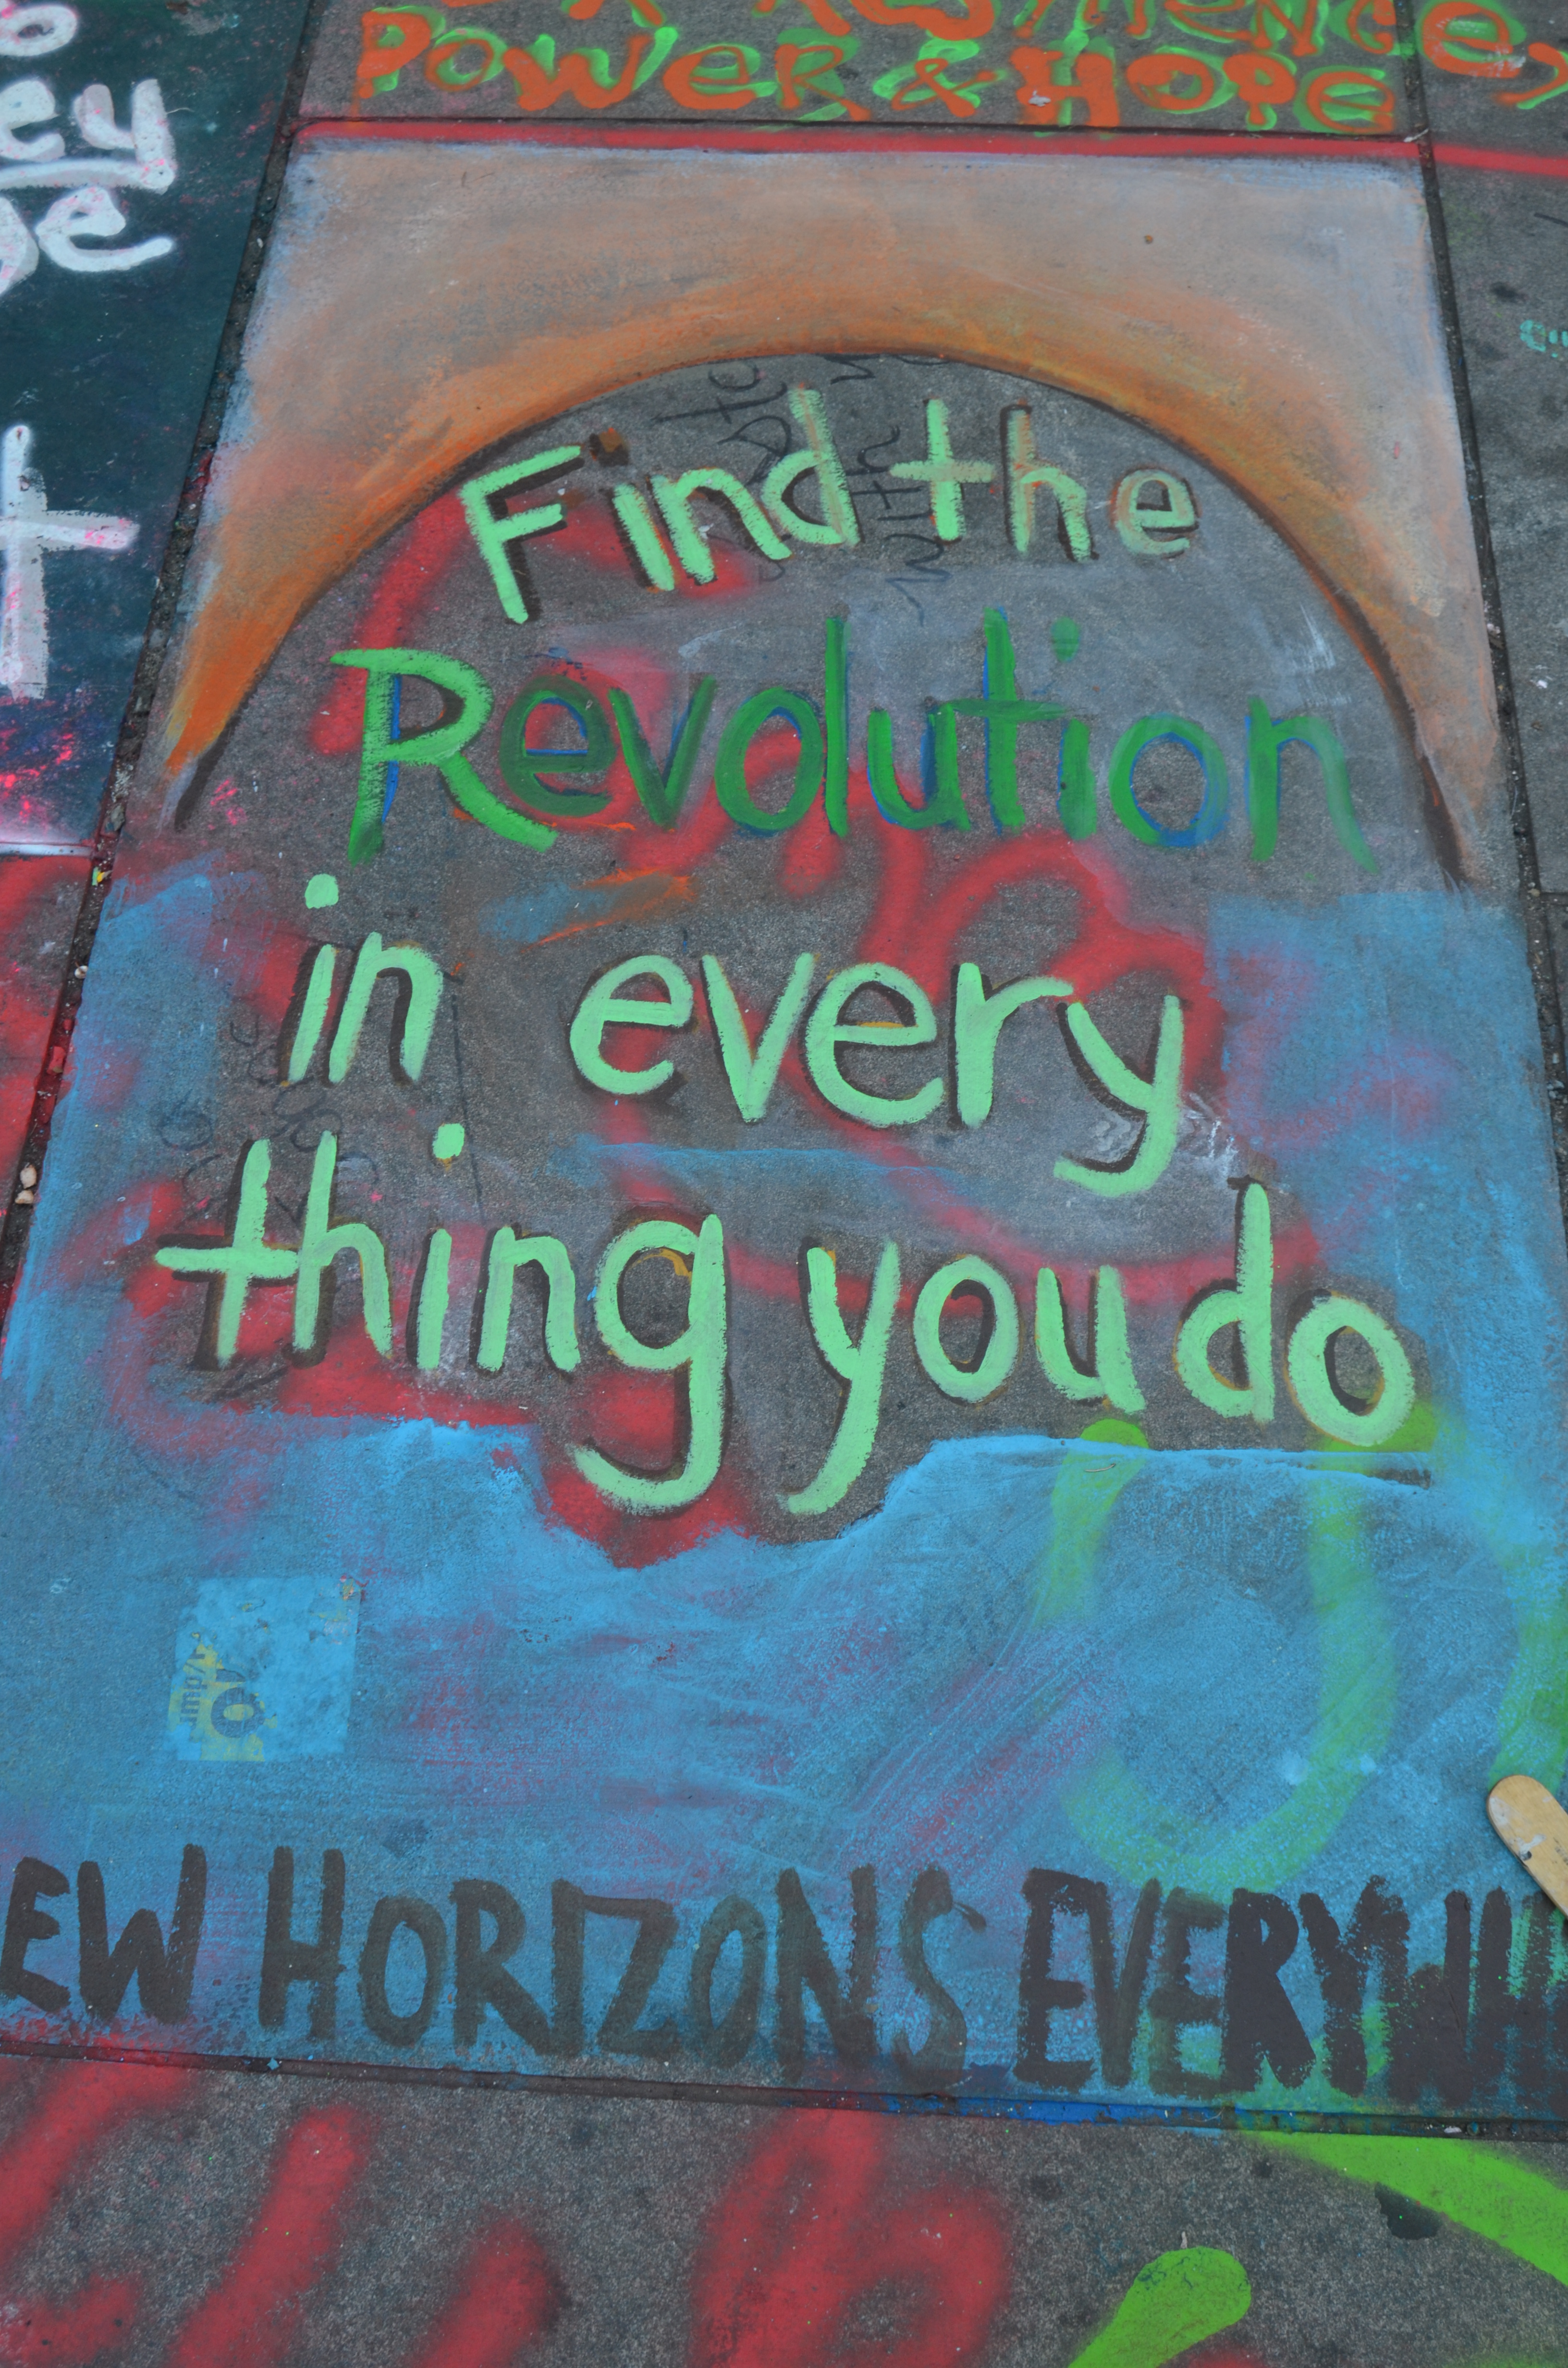 POWER & HOPE
Find the
Revolution
in every
thing you do
EW HORIZONS EVERYWH